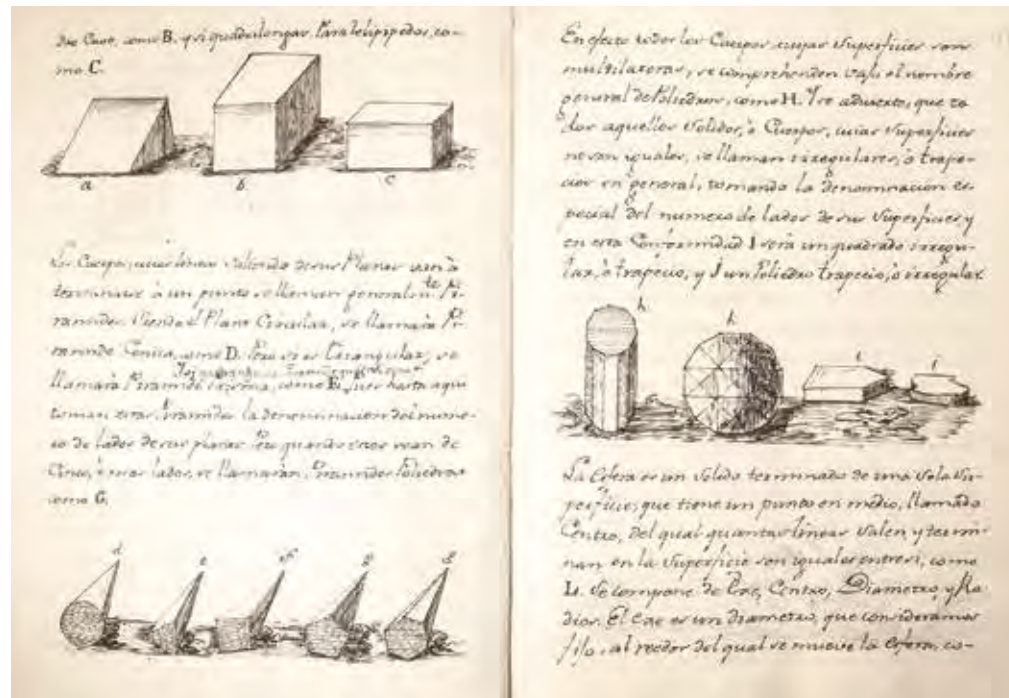 dro Cavo, como B. y si quadrilongas, Paralelipipedos, co-
mo C.
a
b
c
Los Cuerpos, cuias lineas saliendo de sus Planos van à
terminarse à un punto se llaman generalm.te Pi-
ramides. Siendo el Plano Circular, se llamarà Pi-
ramide Conica, como D. Pero si es Triangular, se
llamarà Piramide como E, pues hasta aqui
toman estas Piramides la denominacion del nume-
ro de lados de sus planos. Pero quando estos sean de
Cinco, ò mas lados, se llamaràn, Piramides Poliedras
como G.
d
e
f
g
g
En efecto todos los Cuerpos, cuyas Superficies son
multilateras, se comprehenden vajo el nombre
general de Poliedros, como H. Y se advierte, que to-
dos aquellos Solidos, ò Cuerpos, cuias Superficies
no son yguales, se llaman irregulares, ò trape-
cios en general, tomando la denominacion es-
pecial del numero de lados de sus Superficies y
en esta Conformidad I serà un quadrado irregu-
lar, ò trapecio, y J un Poliedro trapecio, ò irregular
h
h
i
j
La Esfera es un Solido terminado de una sola Su-
perficie, que tiene un punto en medio, llamado
Centro, del qual quantas lineas salen y termi-
nan en la Superficie son yguales entre si, como
L. Se compone de Exe, Centro, Diametro, y Ra-
dios. El Exe es un diametro, que consideramos
fijo, al reedor del qual se mueve la Esfera, co-